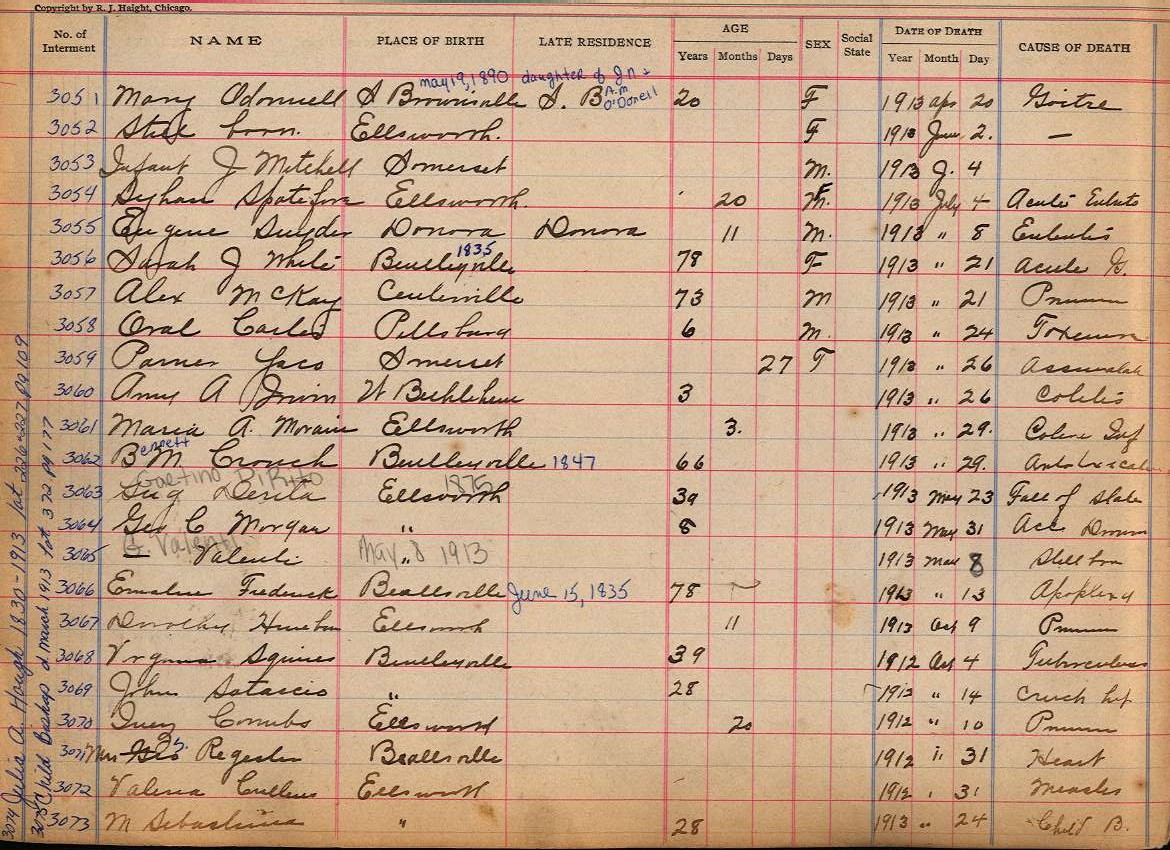 Copyright by R. J. Haight, Chicago.
No. of Interment NAME PLACE OF BIRTH LATE RESIDENCE AGE Years Months Days SEX Social State DATE OF DEATH Year Month Day CAUSE OF DEATH
may 19, 1890 daughter of Jn &
A.m O'Donell
3051 Mary Odonnell S Brownsville S. B 20 F 1913 apr 20 Goitre
3052 Still born. Ellsworth. F 1913 June 2. —
3053 Infant J Mitchell Somerset M. 1913 J. 4
3054 Ellsworth. 20 F M. 1913 July 4 Acute
3055 Eugene Snyder Donora Donora 11 M. 1913 " 8
1835
3056 Sarah J White Bentleyville 78 F 1913 " 21 Acute G.
3057 Alex McKay Centerville 73 M 1913 " 21 Pneum
3058 Oral Pittsburg 6 M. 1913 " 24
3059 Somerset 27 F 1913 " 26
3060 Amy A Irvin W Bethlehem 3 1913 " 26 Colitis
3061 Maria A. Ellsworth 3. 1913 " 29. Inf
ennett
3062 B M Crouch Bentleyville 1847 66 1913 " 29.
Gaetino DiRito 1875
3063 Ellsworth 39 1913 May 23 Fall of slate
3064 Geo C Morgan " 8 1913 May 31 Acc
G. Valenti May. 8 1913
3065 — Valenti " 1913 May 8 Still born
3066 Emaline Frederick Beallsville June 15, 1835 78 1913 " 13 Apoplexy
3067 Dorothy Ellsworth 11 1913 Oct 9 Pneum
3068 Squires Bentleyville 39 1912 Oct 4 Tuberculosis
3069 John " 28 1912 " 14 Crush hip
3070 Combs Ellsworth 20 1912 " 10 Pneum
3071 Mrs Geo Register Beallsville 1912 " 31 Heart
3072 Ellsworth 1912 " 31 Measles
3073 M " 28 1913 " 24 Child B.
3074 Julia A. Hough 1830-1913 lot 226 & 227 pg 109
3075 Child Bishop d march 1913 lot 372 pg 177